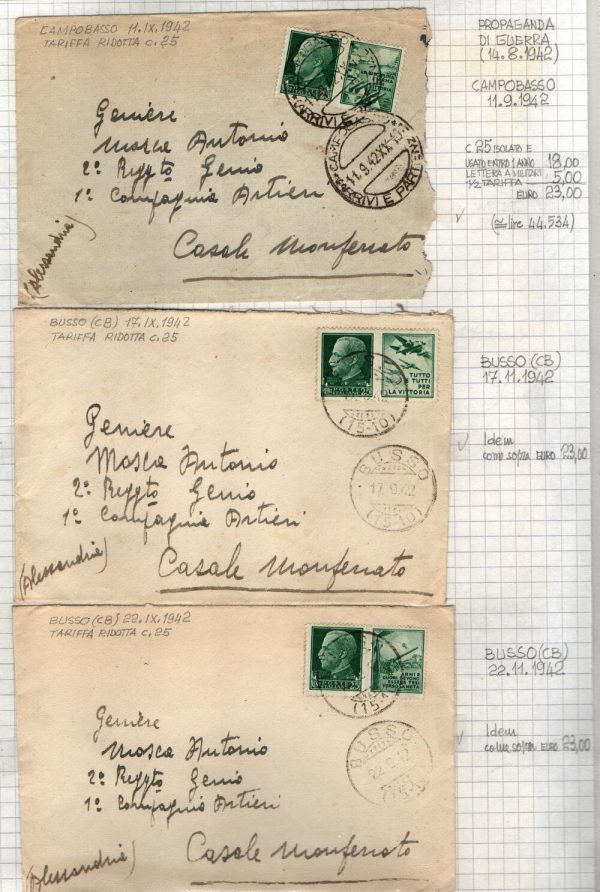 CAMPOBASSO 11.IX.1942
TARIFFA RIDOTTA C.25
ARRIVI E PAR
11.9.42.XX
ARRIVI E PART
Geniere
Mosca Antonio
2º Reggto Genio
1ª Compagnia Artieri
(Alessandria)
Casale Monferrato
PROPAGANDA
DI GUERRA
(14.8.1942)
CAMPOBASSO
11.9.1942
C 25 ISOLATO E
USATO ENTRO 1 ANNO 18,00
LETTERA A MILITARI
1/2 TARIFFA 5,00
EURO 23,00
(≅ lire 44.534)
BUSSO (CB) 17.IX.1942
TARIFFA RIDOTTA C.25
TUTTO
E TUTTI
PER
LA VITTORIA
(15-10)
BUSSO
17.9.42
(15-10)
Geniere
Mosca Antonio
2º Reggto Genio
1ª Compagnia Artieri
(Alessandria)
Casale Monferrato
BUSSO (CB)
17.11.1942
Idem
come sopra EURO 23,00
BUSSO (CB) 22.IX.1942
TARIFFA RIDOTTA C.25
ARMI E
CUORI DEVONO
ESSERE TESI
VERSO LA META
BUSSO
Geniere
Mosca Antonio
2º Reggto Genio
1ª Compagnia Artieri
(Alessandria)
Casale Monferrato
BUSSO (CB)
22.11.1942
Idem
come sopra EURO 23,00